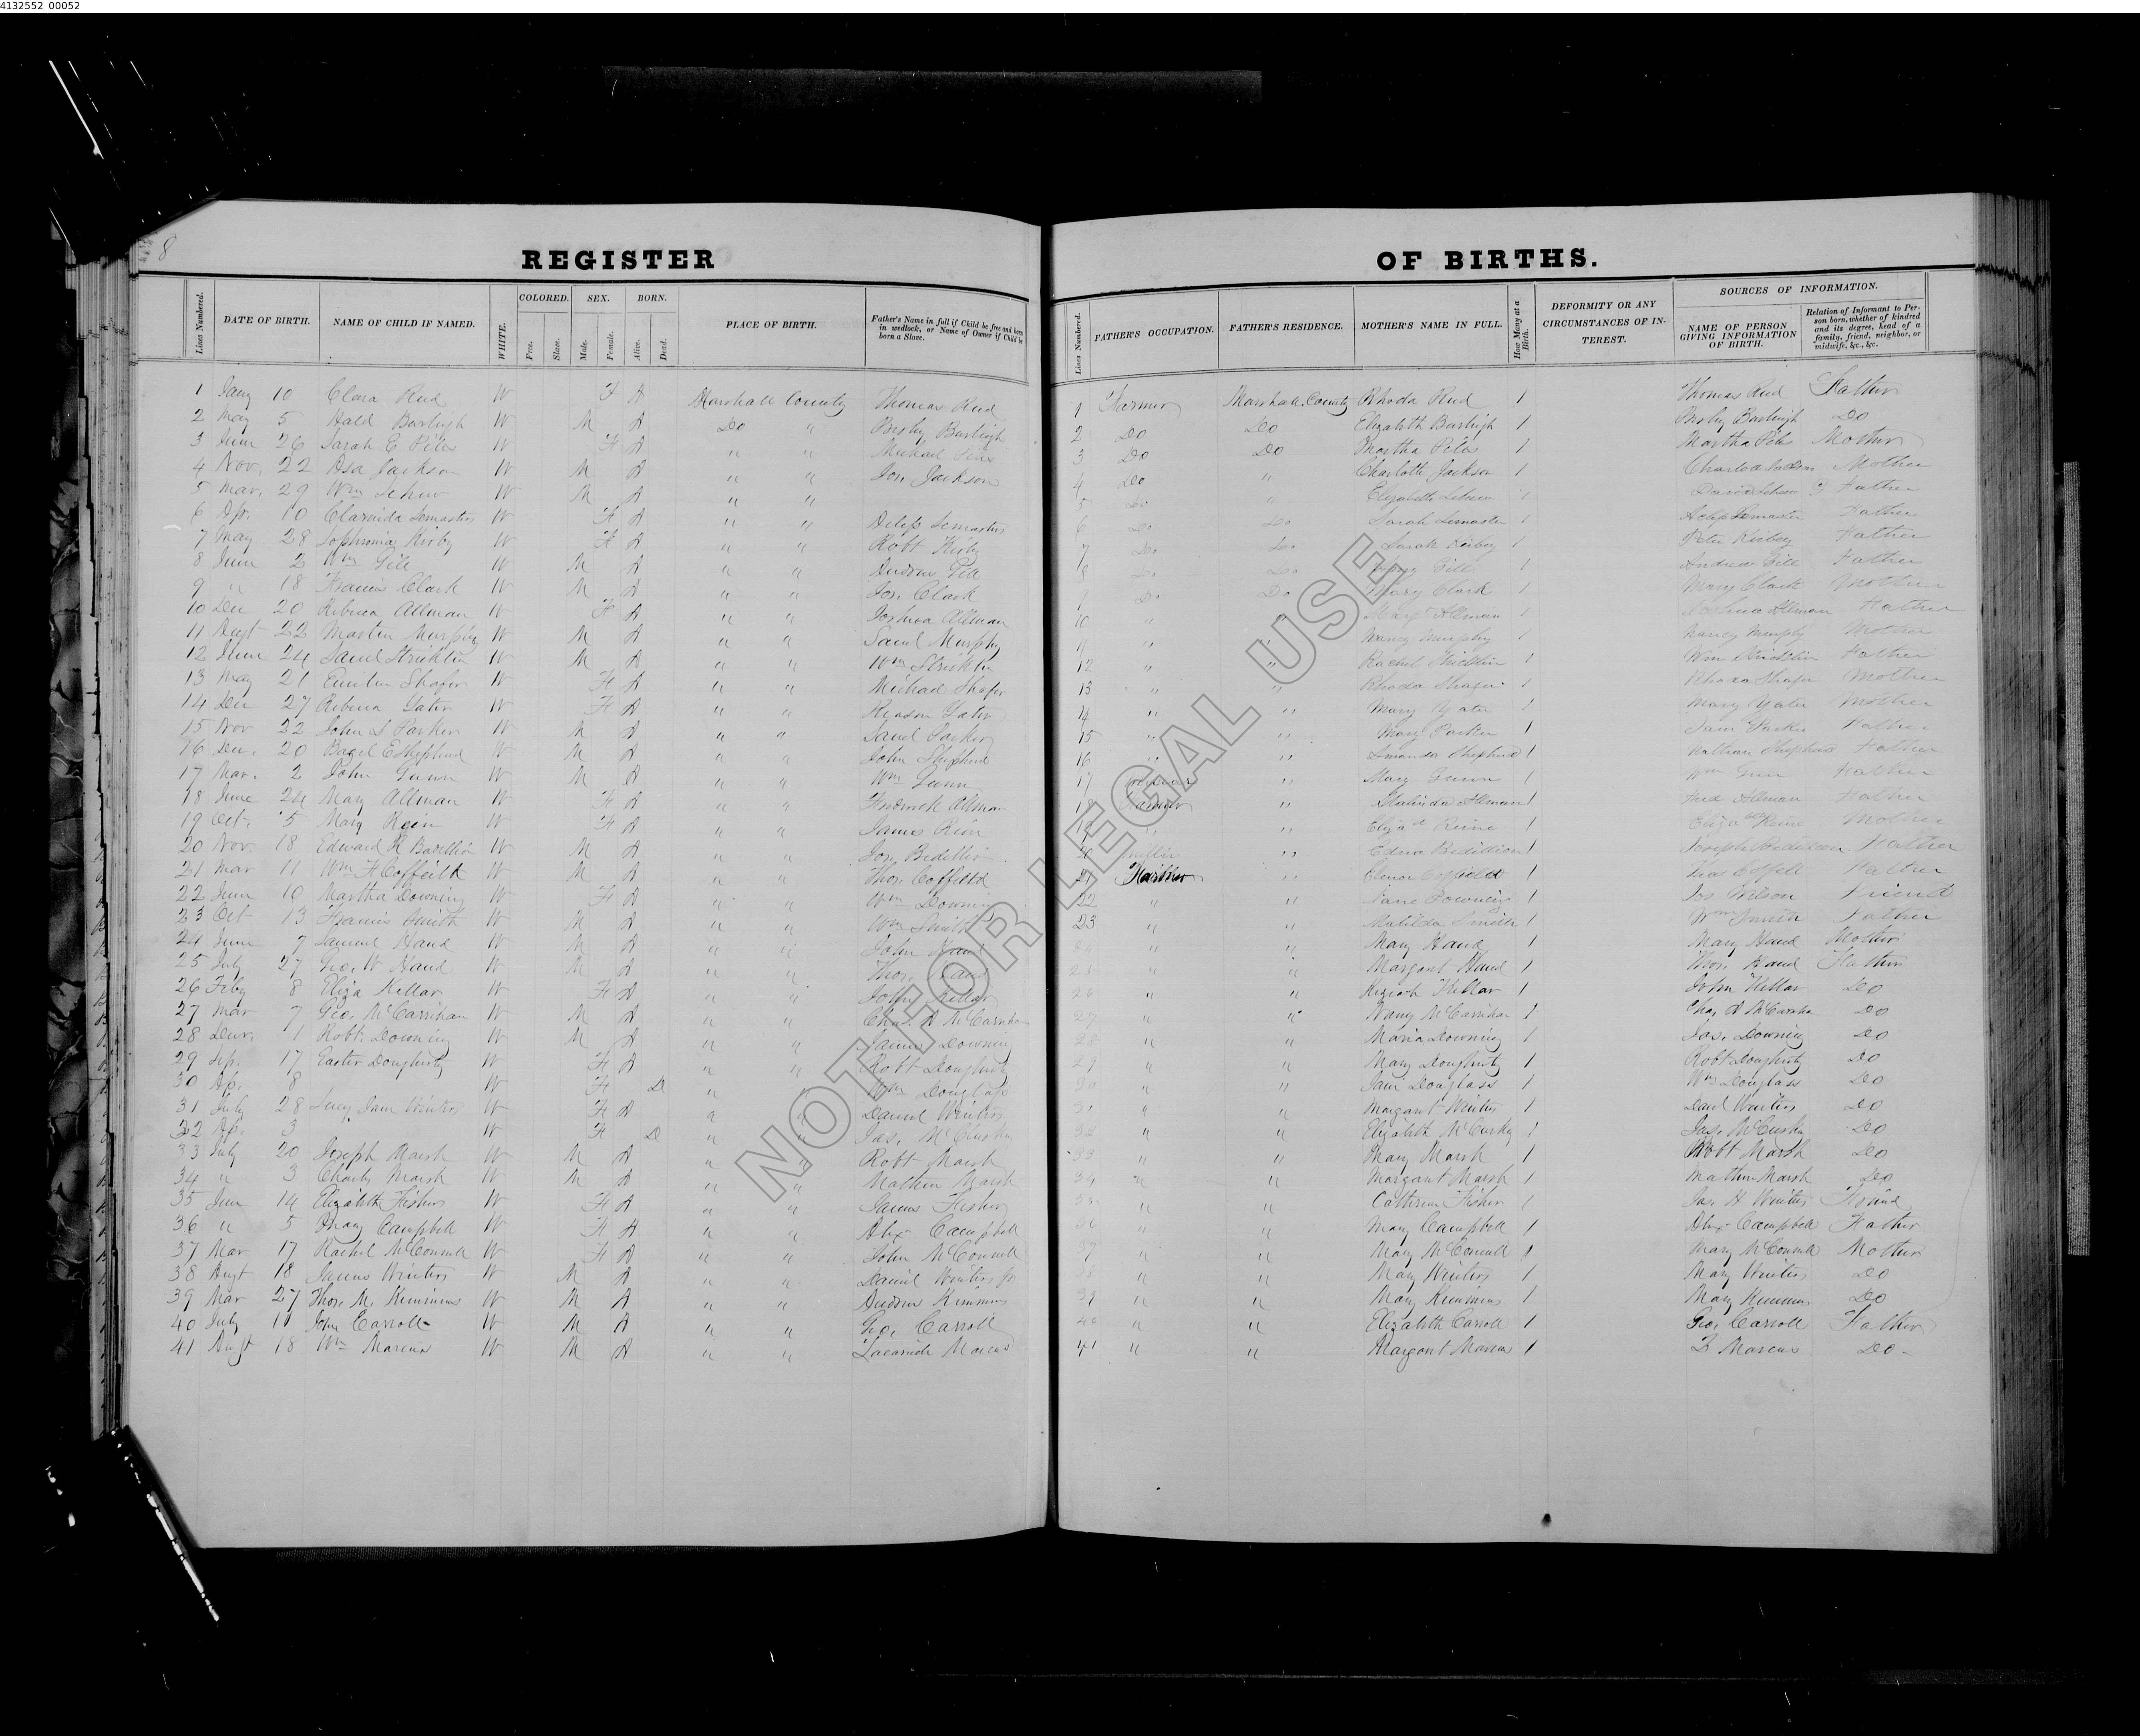 4132552_00052
8
REGISTER OF BIRTHS.
Lines Numbered. DATE OF BIRTH. NAME OF CHILD IF NAMED. WHITE. COLORED. Free. Slave. SEX. Male. Female. BORN. Alive. Dead. PLACE OF BIRTH. Father's Name in full if Child be free and born in wedlock, or Name of Owner if Child be born a Slave. Lines Numbered. FATHER'S OCCUPATION. FATHER'S RESIDENCE. MOTHER'S NAME IN FULL. How Many at a Birth. DEFORMITY OR ANY CIRCUMSTANCES OF INTEREST. SOURCES OF INFORMATION. NAME OF PERSON GIVING INFORMATION OF BIRTH. Relation of Informant to Person born, whether of kindred and its degree, head of a family, friend, neighbor, or midwife, &c., &c.
1 Jany 10 Clara Reed W F A Marshall County Thomas Reed 1 Farmer Marshall County Rhoda Reed 1 Thomas Reed Father
2 May 5 Burleigh W M A Do " Burleigh 2 Do Do Elizabeth Burleigh 1 Burleigh Do
3 June 26 Sarah E Piles W F A " " Michael Piles 3 Do Do Martha Piles 1 Martha Piles Mother
4 Nov. 22 Asa Jackson W M A " " Jos. Jackson 4 Do " Charlotte Jackson 1 Mother
5 Mar. 29 Wm W M A " " 5 Do " Elizabeth 1 David Father
6 Ap. 10 Clarinda Lemasters W F A " " Lemasters 6 Do Do Sarah Lemaster 1 Lemaster Father
7 May 28 Sophronia Kirby W F A " " Robt Kirby 7 Do Do Sarah Kirby 1 Peter Kirby Father
8 June 2 Wm Gill W M A " " Andrew Gill 8 Do Do Gill 1 Andrew Gill Father
9 " 18 Francis Clark W M A " " Jos. Clark 9 Do Do Mary Clark 1 Mary Clark Mother
10 Dec 20 Rebecca Allman W F A " " Joshua Allman 10 " " Allman 1 Joshua Allman Father
11 Augt 22 Martin Murphy W M A " " Saml Murphy 11 " " Nancy Murphy 1 Nancy Murphy Mother
12 June 24 Saml Stricklin W M A " " Wm Stricklin 12 " " Rachel Stricklin 1 Wm Stricklin Father
13 May 21 Shafer W F A " " Michael Shafer 13 " " Rhoda Shafer 1 Rhoda Shafer Mother
14 Dec 27 Rebecca Yater W F A " " Reason Yater 14 " " Mary Yater 1 Mary Yater Mother
15 Nov 22 John S Parker W M A " " Saml Parker 15 " " Mary Parker 1 Saml Parker Father
16 Dec. 20 Bazel E Shepherd W M A " " John Shepherd 16 " " Amanda Shepherd 1 Nathan Shepherd Father
17 Mar. 2 John Gunn W M A " " Wm Gunn 17 " Mary Gunn 1 Wm Gunn Father
18 June 24 Mary Allman W F A " " Frederick Allman 18 Farmer " Malinda Allman 1 Fred Allman Father
19 Oct. 5 Mary Rein W F A " " James Rein 19 " " Elizath Reine 1 Elizath Reine Mother
20 Nov. 18 Edward R W M A " " Jos. Bedillion 20 Miller " Edna Bedillion 1 Joseph Bedillion Father
21 Mar 11 Wm H Coffield W M A " " Thos. Coffield 21 Farmer " Elenor Coffield 1 Father
22 June 10 Martha Downing W F A " " Wm Downing 22 " " Jane Downing 1 Jos Wilson Friend
23 Oct 13 Francis Smith W M A " " Wm Smith 23 " " Matilda Smith 1 Wm Smith Father
24 June 7 Samuel Hand W M A " " John Hand 24 " " Mary Hand 1 Mary Hand Mother
25 July 27 Geo. W Hand W M A " " Thos. Hand 25 " " Margaret Hand 1 Thos. Hand Father
26 Feby 8 Eliza Kellar W F A " " John Kellar 26 " " Keziah Kellar 1 John Kellar Do
27 Mar 7 Geo. McCarrihan W M A " " Chas. A McCarrihan 27 " " Nancy McCarrihan 1 Chas A McCarrihan Do
28 Dec. 1 Robt. Downing W M A " " James Downing 28 " " Maria Downing 1 Jas. Downing Do
29 Sep. 17 Easter Dougherty W F A " " Robt Dougherty 29 " " Mary Dougherty 1 Robt Dougherty Do
30 Ap. 8 W F D " Wm Douglass 30 " " Jane Douglass 1 Wm Douglass Do
31 July 28 Lucy Jane Winters W F A " " Daniel Winters 31 " " Margaret Winters 1 Danl Winters Do
32 Ap. 3 W F D " " Jas. McClusky 32 " " Elizabeth McCusky 1 Jas. McCusky Do
33 July 20 Joseph Marsh W M A " " Robt Marsh 33 " " Mary Marsh 1 Robt Marsh Do
34 " 3 Charles Marsh W M A " " Mathew Marsh 34 " " Margaret Marsh 1 Mathew Marsh Do
35 June 14 Elizabeth Fisher W F A " " James Fisher 35 " " Catherine Fisher 1 Jas. H Winters Friend
36 " 5 Mary Campbell W F A " " Alex Campbell 36 " " Mary Campbell 1 Alex Campbell Father
37 Mar 17 Rachel McConnell W F A " " John McConnell 37 " " Mary McConnell 1 Mary McConnell Mother
38 Augt 18 James Winters W M A " " Daniel Winters Jr 38 " " Mary Winters 1 Mary Winters Do
39 Mar 27 Thos. M. Kimmins W M A " " Andrew Kimmins 39 " " Mary Kimmins 1 Mary Kimmins Do
40 July 11 John Carroll W M A " " Geo. Carroll 40 " " Elizabeth Carroll 1 Geo. Carroll Father
41 Augt 18 Wm Marcus W M A " " Zacariah Marcus 41 " " Margaret Marcus 1 Z Marcus Do
NOT FOR LEGAL USE